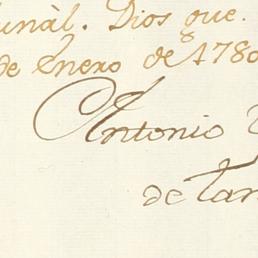 unàl. Dios gue.
de Enero de 1780
Antonio
de Tar